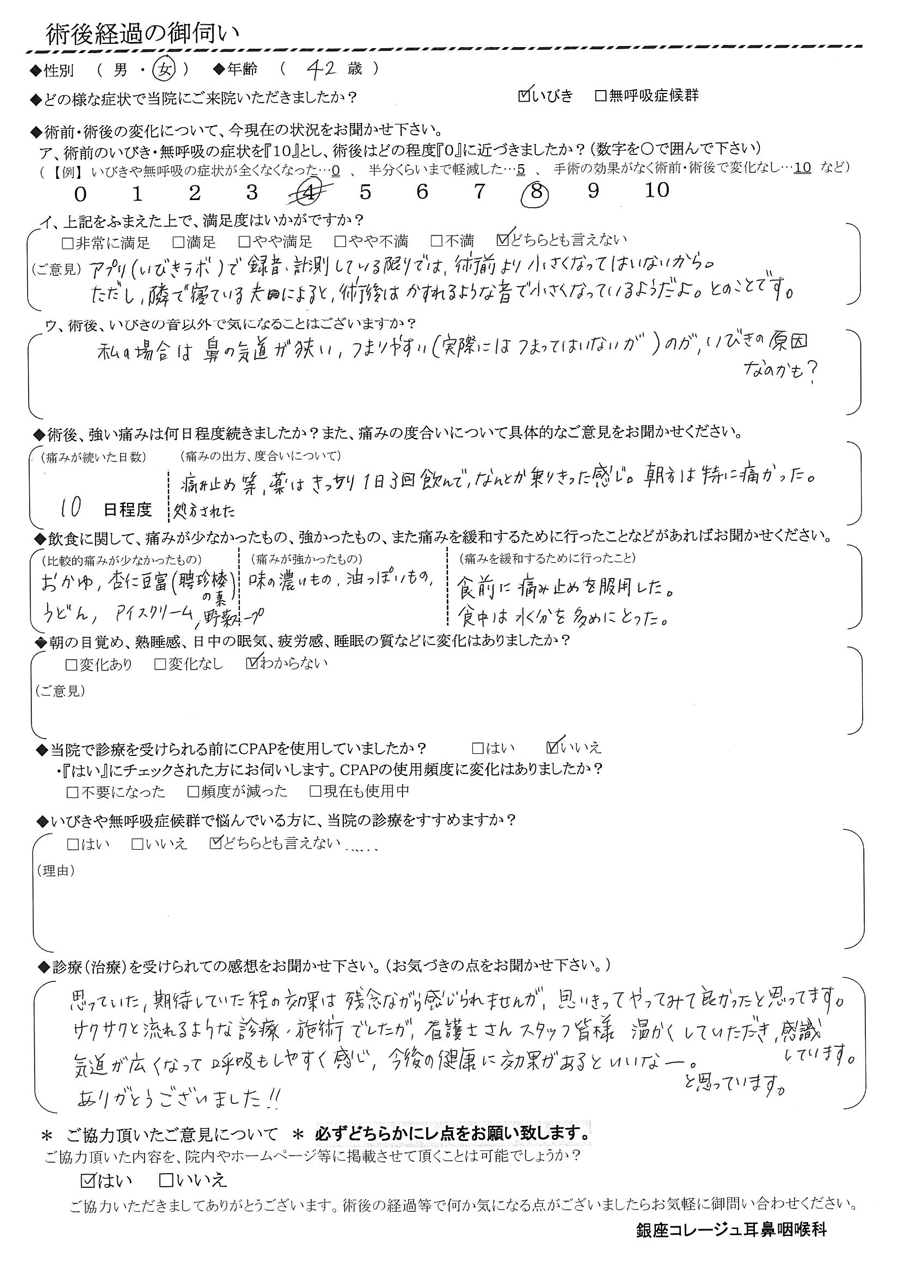 術後経過の御伺い
◆性別 （ 男 ・ 女 ） ◆年齢 （ 42 歳 ）
◆どの様な症状で当院にご来院いただきましたか？ ☑いびき □無呼吸症候群
◆術前・術後の変化について、今現在の状況をお聞かせ下さい。
ア、術前のいびき・無呼吸の症状を『10』とし、術後はどの程度『0』に近づきましたか？（数字を〇で囲んで下さい）
（【例】 いびきや無呼吸の症状が全くなくなった…0 、 半分くらいまで軽減した…5 、 手術の効果がなく術前・術後で変化なし…10 など）
0 1 2 3 4 5 6 7 8 9 10
イ、上記をふまえた上で、満足度はいかがですか？
□非常に満足 □満足 □やや満足 □やや不満 □不満 ☑どちらとも言えない
（ご意見） アプリ（いびきラボ）で録音、計測している限りでは、術前より小さくなってはいないから。
ただし、隣で寝ている夫によると、術後はかすれるような音で小さくなっているようだよ。とのことです。
ウ、術後、いびきの音以外で気になることはございますか？
私の場合は鼻の気道が狭い、つまりやすい（実際にはつまってはいないが）のが、いびきの原因
なのかも？
◆術後、強い痛みは何日程度続きましたか？また、痛みの度合いについて具体的なご意見をお聞かせください。
（痛みが続いた日数） （痛みの出方、度合いについて）
痛み止め等、薬はきっちり1日3回飲んで、なんとか乗りきった感じ。朝方は特に痛かった。
10 日程度 処方された
◆飲食に関して、痛みが少なかったもの、強かったもの、また痛みを緩和するために行ったことなどがあればお聞かせください。
（比較的痛みが少なかったもの） （痛みが強かったもの） （痛みを緩和するために行ったこと）
おかゆ、杏仁豆富（聘珍樓の素） 味の濃いもの、油っぽいもの、 食前に痛み止めを服用した。
うどん、アイスクリーム、野菜スープ 食中は水分を多めにとった。
◆朝の目覚め、熟睡感、日中の眠気、疲労感、睡眠の質などに変化はありましたか？
□変化あり □変化なし ☑わからない
（ご意見）
◆当院で診療を受けられる前にCPAPを使用していましたか？ □はい ☑いいえ
・『はい』にチェックされた方にお伺いします。CPAPの使用頻度に変化はありましたか？
□不要になった □頻度が減った □現在も使用中
◆いびきや無呼吸症候群で悩んでいる方に、当院の診療をすすめますか？
□はい □いいえ ☑どちらとも言えない……
（理由）
◆診療（治療）を受けられての感想をお聞かせ下さい。（お気づきの点をお聞かせ下さい。）
思っていた、期待していた程の効果は残念ながら感じられませんが、思いきってやってみて良かったと思ってます。
サクサクと流れるような診療・施術でしたが、看護士さんスタッフ皆様 温かくしていただき、感識しています。
気道が広くなって呼吸もしやすく感じ、今後の健康に効果があるといいなー。
と思っています。
ありがとうございました!!
＊ ご協力頂いたご意見について ＊ 必ずどちらかにレ点をお願い致します。
ご協力頂いた内容を、院内やホームページ等に掲載させて頂くことは可能でしょうか？
☑はい □いいえ
ご協力いただきましてありがとうございます。術後の経過等で何か気になる点がございましたらお気軽に御問い合わせください。
銀座コレージュ耳鼻咽喉科